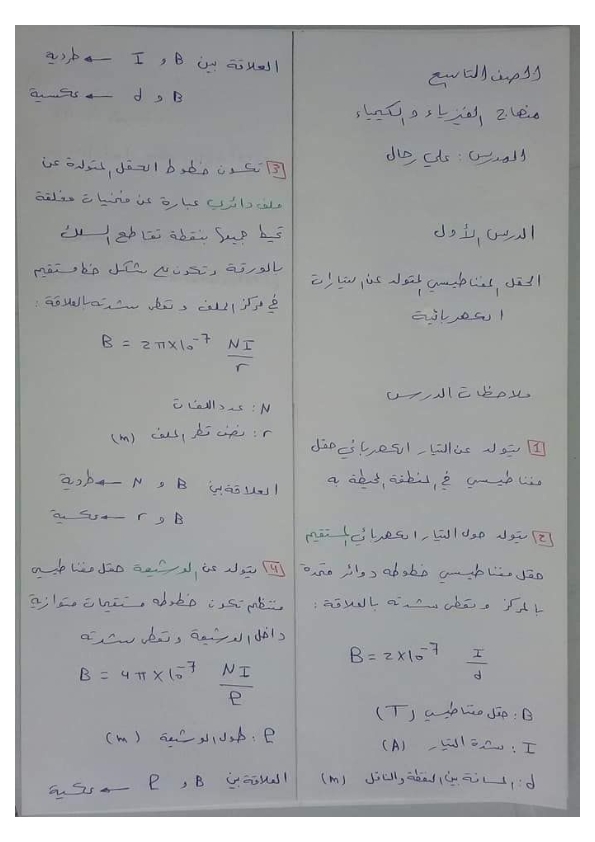 الصف التاسع
منهاج الفيزياء والكيمياء
المدرس : علي رحال
الدرس الأول
الحقل المغناطيسي المتولد عن التيارات
الكهربائية
ملاحظات الدرس
1 يتولد عن التيار الكهربائي حقل
مغناطيسي في المنطقة المحيطة به
2 يتولد حول التيار الكهربائي المستقيم
حقل مغناطيسي خطوطه دوائر متحدة
بالمركز وتعطى شدته بالعلاقة :
B = 2×10⁻⁷ I/d
B : حقل مغناطيسي (T)
I : شدة التيار (A)
d : المسافة بين النقطة والناقل (m)
العلاقة بين B و I ← طردية
B و d ← عكسية
3 تكون خطوط الحقل المتولدة عن
ملف دائري عبارة عن منحنيات مغلقة
تحيط جميعها بنقطة تقاطع السلك
بالورقة وتكون على شكل خط مستقيم
في مركز الملف وتعطى شدته بالعلاقة :
B = 2π×10⁻⁷ NI/r
N : عدد اللفات
r : نصف قطر الملف (m)
العلاقة بين B و N ← طردية
B و r ← عكسية
4 يتولد عن الوشيعة حقل مغناطيسي
منتظم تكون خطوطه مستقيمات متوازية
داخل الوشيعة وتعطى شدته
B = 4π×10⁻⁷ NI/ℓ
ℓ : طول الوشيعة (m)
العلاقة بين B و ℓ ← عكسية